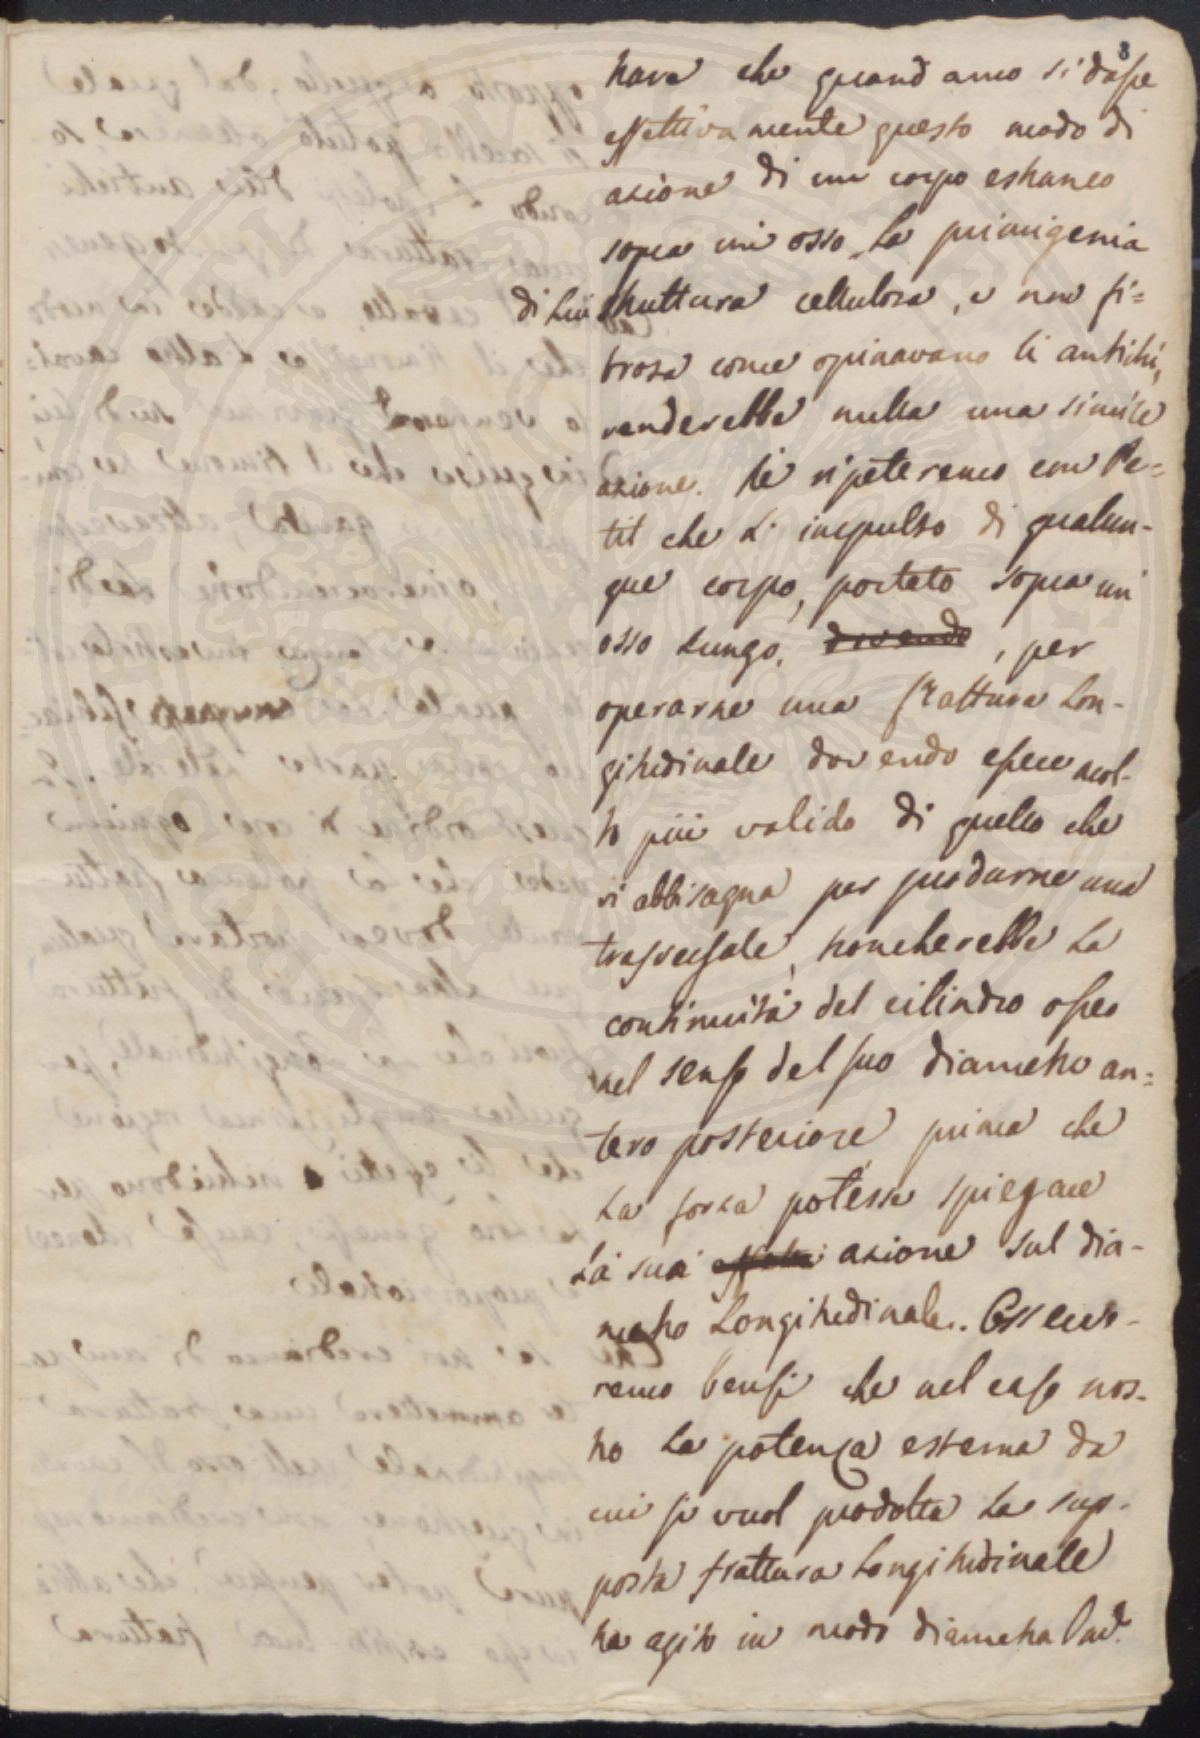 8
trare che quand'anco si dasse
effettivamente questo modo di
azione di un corpo estraneo
sopra un osso, la primigenia
di lui struttura cellulosa, e non fi=
brosa come opinavano li antichi,
renderebbe nulla una simile
azione. Se ripeteremo con Pe=
tit che l'impulso di qualun-
que corpo, portato sopra un
osso lungo, dovendo, per
operarne una frattura lon-
gitudinale dovendo essere mol-
to più valido di quello che
vi abbisogna per produrne una
trasversale, troncherebbe la
continuità del cilindro osseo
nel senso del suo diametro an=
tero posteriore, prima che
la forza potesse spiegare
la sua azione sul dia-
metro longitudinale. Osserve-
remo bensì che nel caso nos-
tro la potenza esterna da
cui si vuol prodotta la sup-
posta frattura longitudinale
ha agito in modo diametral.